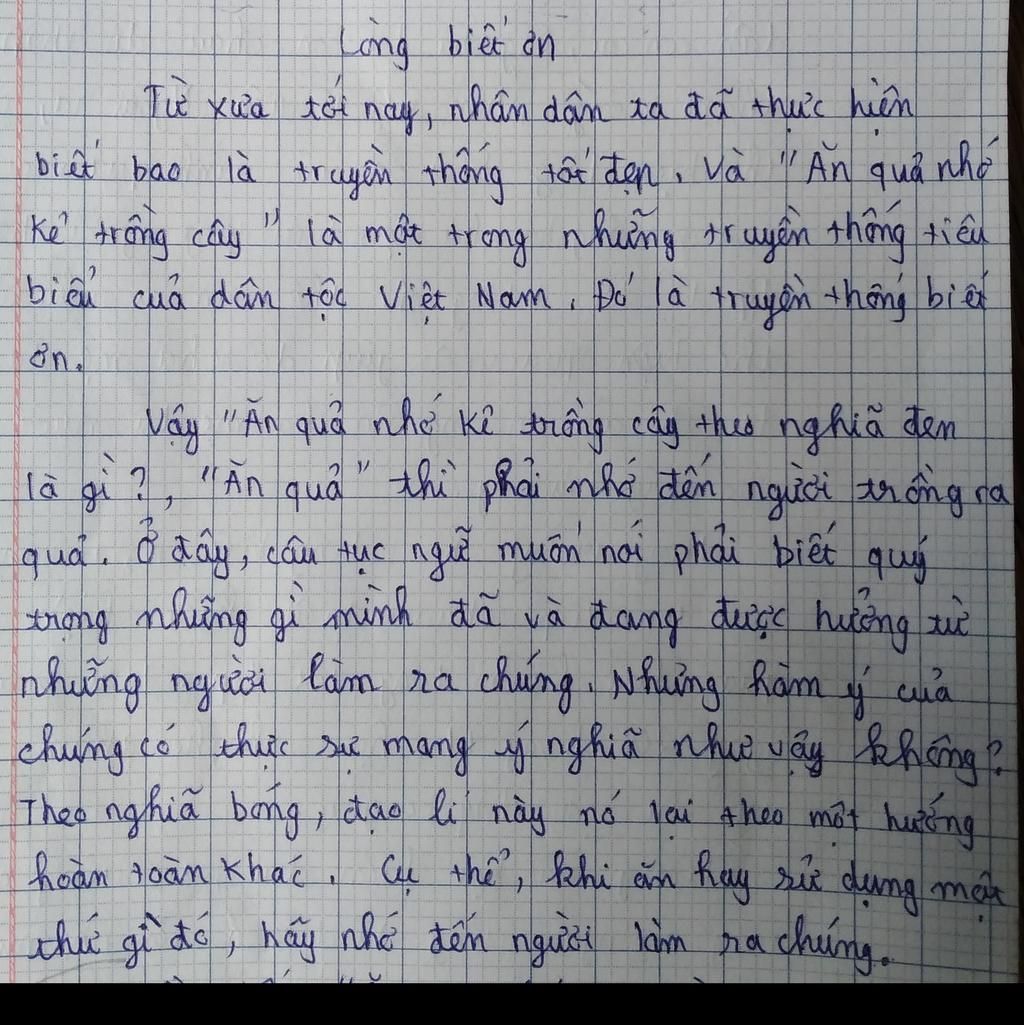 Lòng biết ơn
Từ xưa tới nay, nhân dân ta đã thực hiện
biết bao là truyền thống tốt đẹp. Và "Ăn quả nhớ
kẻ trồng cây" là một trong những truyền thống tiêu
biểu của dân tộc Việt Nam. Đó là truyền thống biết
ơn.
Vậy "Ăn quả nhớ kẻ trồng cây theo nghiã đen
là gì?, "Ăn quả" thì phải nhớ đến người trồng ra
quả. Ở đây, câu tục ngữ muốn nói phải biết quý
trọng những gì mình đã và đang được hưởng từ
những người làm ra chúng. Nhưng hàm ý của
chúng có thực sự mang ý nghiã như vậy không?
Theo nghiã bóng, đạo lí này nó lại theo một hướng
hoàn toàn khác. Cụ thể, khi ăn hay sử dụng một
thứ gì đó, hãy nhớ đến người làm ra chúng.